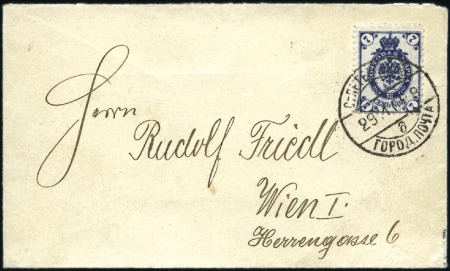 7 7
Herrn
Rudolf Friedl
Wien I.
Herrengasse 6
ГОРОД. ПОЧТА